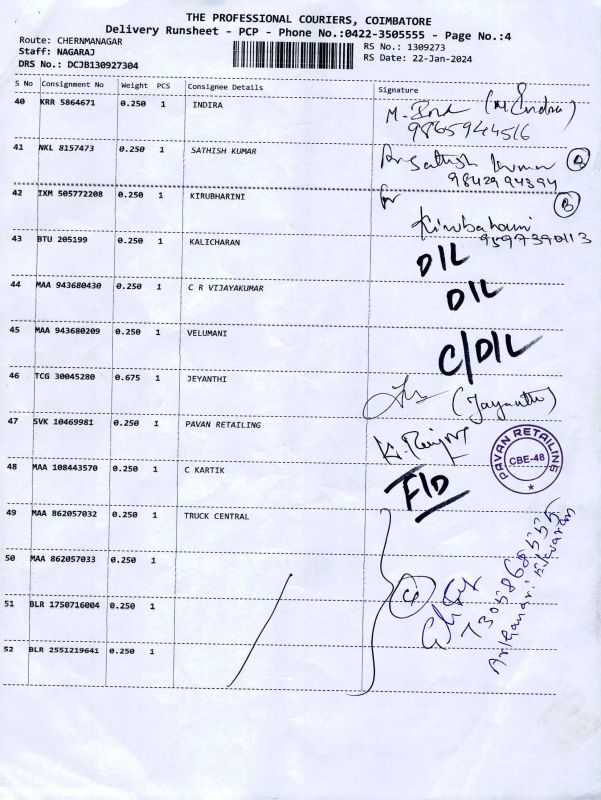 THE PROFESSIONAL COURIERS, COIMBATORE
Delivery Runsheet - PCP - Phone No.:0422-3505555 - Page No.:4
Route: CHERNMANAGAR
Staff: NAGARAJ
DRS No.: DCJB130927304
RS No.: 1309273
RS Date: 22-Jan-2024
S No Consignment No Weight PCS Consignee Details Signature
40 KRR 5864671 0.250 1 INDIRA
(M. Indira)
9865944516
41 NKL 8157473 0.250 1 SATHISH KUMAR
Sathish Kumar 2
9842994394
42 IXM 505772208 0.250 1 KIRUBHARINI
for B
43 BTU 205199 0.250 1 KALICHARAN
9597390113
D/L
44 MAA 943680430 0.250 1 C R VIJAYAKUMAR
D/L
45 MAA 943680209 0.250 1 VELUMANI
C/D/L
46 TCG 30045280 0.675 1 JEYANTHI
(Jayanthi)
47 SVK 10469981 0.250 1 PAVAN RETAILING
PAVAN RETAILING
CBE-48
48 MAA 108443570 0.250 1 C KARTIK
F/D
49 MAA 862057032 0.250 1 TRUCK CENTRAL
50 MAA 862057033 0.250 1
4
7305868555
51 BLR 1750716004 0.250 1
52 BLR 2551219641 0.250 1